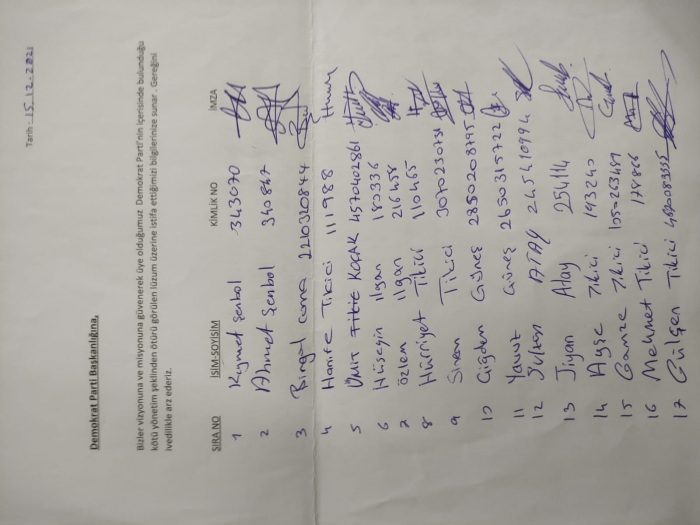 Tarih: 15.12.2021
Demokrat Parti Başkanlığına,
Bizler vizyonuna ve misyonuna güvenerek üye olduğumuz Demokrat Parti'nin içerisinde bulunduğu
kötü yönetim şeklinden ötürü görülen lüzum üzerine istifa ettiğimizi bilgilerinize sunar . Gereğini
ivedilikle arz ederiz.
SIRA NO İSİM-SOYİSİM KİMLİK NO İMZA
1 Kıymet Şenbol 343070
2 Ahmet Şenbol 340847
3 Birgül cuma 2210320844
4 Hanife Tikici 111988
5 Ümit Fikie KOÇAK 4570402861
6 Hüseyin ilgan 180336
7 özlem ilgan 216458
8 Hürriyet Tikici 110465
9 Sinem Tikici
10 Çiğdem Güneş 2850208795
11 Yavuz Güneş 2650315722
12 ATAY 2454410994
13 Jiyan Atay 254114
14 Ayşe Tikici 143240
15 Gamze Tikici 1050263489
16 Mehmet Tikici 178866
17 Gülşen Tikici 4620083555